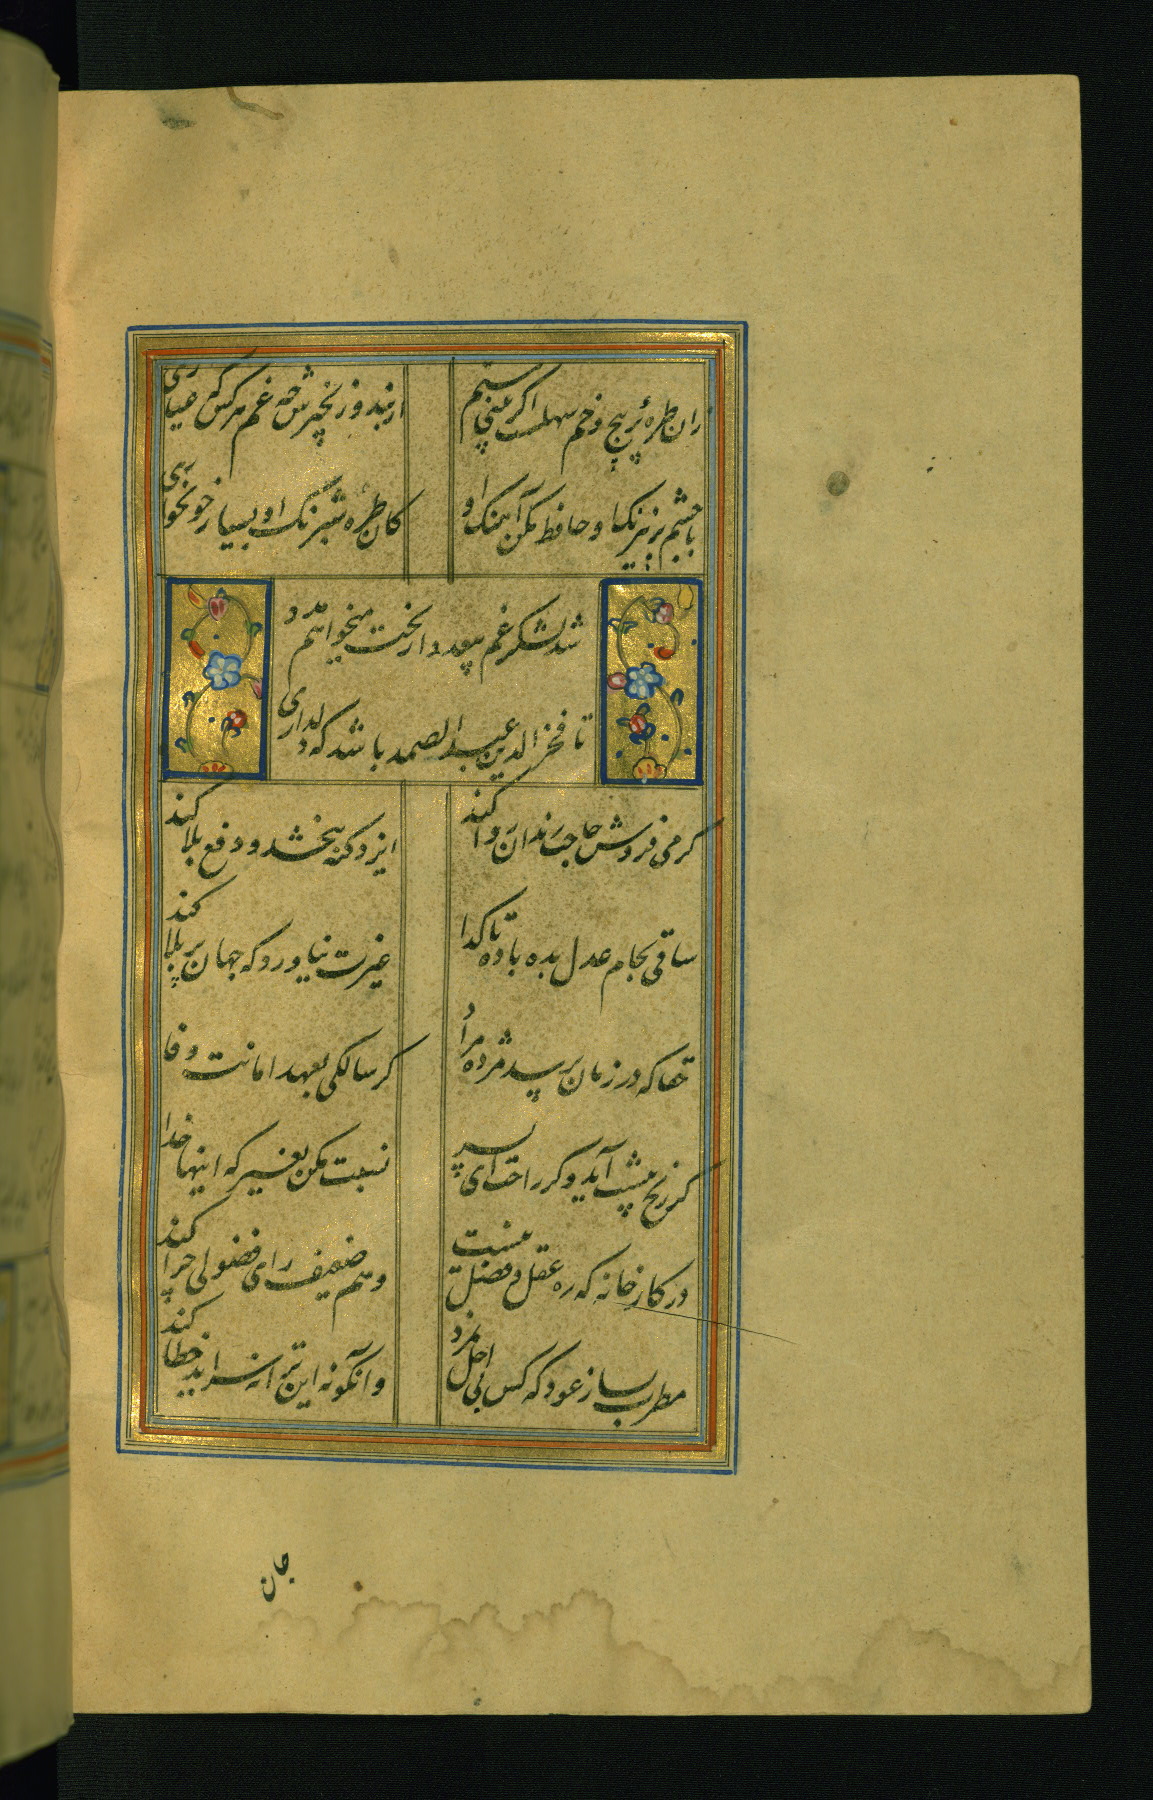 زان طره پر پیچ و خم سهلست اگر بینی ستم
از بند و زنجیرش چه غم هر کس که عیاری
با چشم پر نیرنگ او حافظ مکن آهنگ او
کان طره شبرنگ او بسیار خونخواری
شد لشکر غم بیعدد از بخت میخواهم مدد
تا فخر الدین عبد الصمد باشد که دلداری
کر می فروش حاجت رندان روا کند
ایزد کنه ببخشد و دفع بلا کند
ساقی بجام عدل بده باده تا کدا
غیرت نیاورد که جهان پر بلا کند
حقا که در زمان برسد مژده مراد
کر سالکی بعهد امانت وفا
کر رنج پیش آید و کر راحت ای پسر
نسبت مکن بغیر که اینها خدا
در کارخانه که ره عقل و فضل نیست
وهم ضعیف رای فضولی چرا کند
مطرب بساز عود که کس بی اجل نمرد
وانکونه این ترانه سراید خطا کند
جان